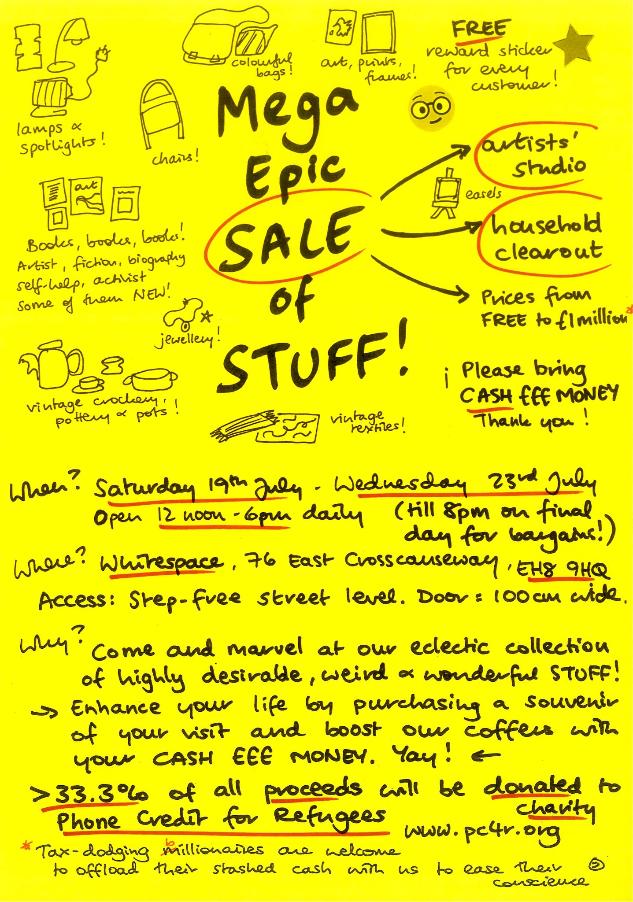 lamps &
spotlights!
colourful
bags!
art, prints,
frames!
FREE
reward sticker
for every
customer!
chairs!
Mega
Epic
SALE
of
STUFF!
artists'
studio
easels
household
clearout
Prices from
FREE to £1million*
art
Books, books, books!
Artist, fiction, biography
self-help, activist
Some of them NEW!
jewellery!
vintage crockery,
pottery & pots!
vintage
textiles!
¡ Please bring
CASH £££ MONEY
Thank you!
When? Saturday 19th July - Wednesday 23rd July
Open 12 noon - 6pm daily (till 8pm on final
day for bargains!)
Where? Whitespace, 76 East Crosscauseway, EH8 9HQ
Access: Step-free street level. Door = 100cm wide.
Why? Come and marvel at our eclectic collection
of highly desirable, weird & wonderful STUFF!
→ Enhance your life by purchasing a souvenir
of your visit and boost our coffers with
your CASH £££ MONEY. Yay! ←
> 33.3% of all proceeds will be donated to
charity
Phone Credit for Refugees www.pc4r.org
* Tax-dodging millionaires are welcome
to offload their stashed cash with us to ease their
conscience